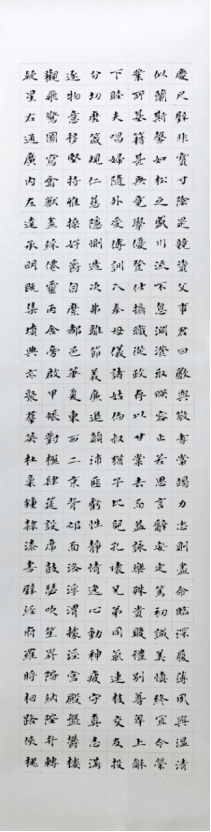 慶尺璧非寶寸陰是競資父事君曰嚴與敬孝當竭力忠則盡命臨深履薄夙興溫清
似蘭斯馨如松之盛川流不息淵澄取映容止若思言辭安定篤初誠美慎終宜令榮
業所基籍甚無竟學優登仕攝職從政存以甘棠去而益詠樂殊貴賤禮別尊卑上和
下睦夫唱婦隨外受傅訓入奉母儀諸姑伯叔猶子比兒孔懷兄弟同氣連枝交友投
分切磨箴規仁慈隱惻造次弗離節義廉退顛沛匪虧性靜情逸心動神疲守真志滿
逐物意移堅持雅操好爵自縻都邑華夏東西二京背邙面洛浮渭據涇宮殿盤鬱樓
觀飛驚圖寫禽獸畫綵仙靈丙舍傍啟甲帳對楹肆筵設席鼓瑟吹笙升階納陛弁轉
疑星右通廣內左達承明既集墳典亦聚群英杜稾鍾隸漆書壁經府羅將相路俠槐